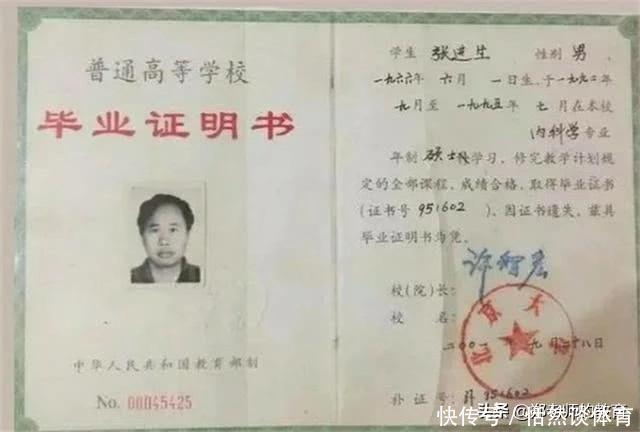 普通高等学校
毕业证明书
中华人民共和国教育部制
No. 00045425
学生 张进生 性别 男 、
一九六六年 六月 一日生,于一九九二年
九月至 一九九五年 七月在本校
内科学 专业
年制 硕士 学习,修完教学计划规
定的全部课程,成绩合格,取得毕业证书
(证书号 951602 )。因证书遗失,兹具
毕业证明书为凭。
校(院)长:
校 名:
北京大
二〇〇一 九月二十八日
补证号: 951602
头条 @郑老师的教育
快传号/怡然谈体育